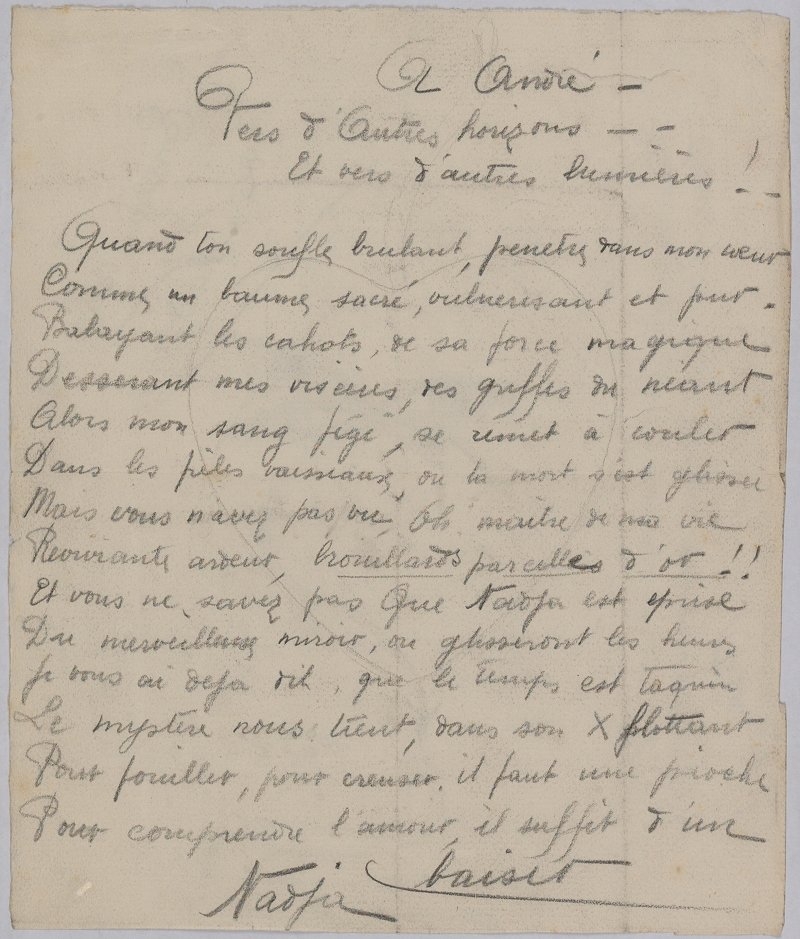 A André –
Vers d'Autres horizons – –
Et vers d'autres lumières ! –
Quand ton souffle brulant, penetre dans mon cœur
Comme, un baume, sacré, vulneresant et pur.
Balayant les cahots, de sa force magique
Desserant mes viscères, des griffes du néant
Alors mon sang figé, se remet à couler
Dans les frêles vaisseaux, ou la mort s'est glissée
Mais vous n'avez pas vu, Oh maitre de ma vie
Revivante ardeur, brouillards parcelles d'or – !!
Et vous ne, savez pas Que Nadja est éprise
Du merveilleux miroir, ou glisseront les heures
Je vous ai deja dit, que le temps est taquin
Le mystère nous tient, dans son X flottant
Pour fouiller, pour creuser. il faut une pioche
Pour comprendre l'amour, il suffit d'un
baiser
Nadja